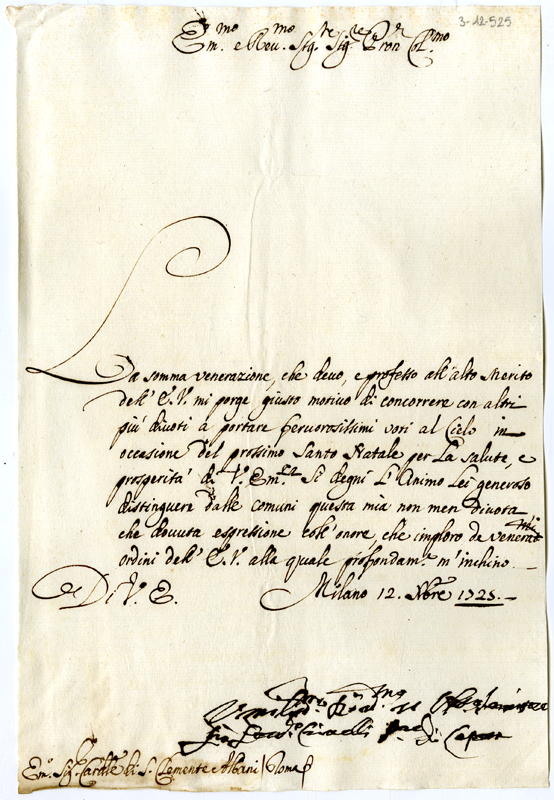 3-12-525
Em.mo e Rev.mo Sig.re Sig.re Pron Col.mo
La somma venerazione, che devo, e professo all'alto Merito
dell' E.V. mi porge giusto motivo di concorrere con altri
più divoti à portare fervorosissimi voti al Cielo in
occasione del prossimo Santo Natale per La salute, e
prosperità di V. Em.za Si degni L'Animo Lei generoso
distinguere dalle comuni questa mia non men divota
che dovuta espressione coll'onore, che imploro de venerat.mi
ordini dell' E.V. alla quale profondam.e m'inchino.
Di V.E. Milano 12. Nbre 1725.
Em.o Sig.r Cardle di S. Clemente Albani / Roma